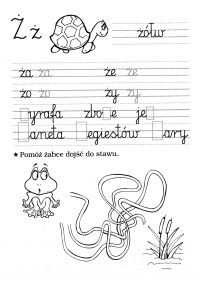 Ż ż żółw
ża ża że że
żo żo ży ży
□yrafa zbo□e je□
□aneta □egiestów □ary
★ Pomóż żabce dojść do stawu.